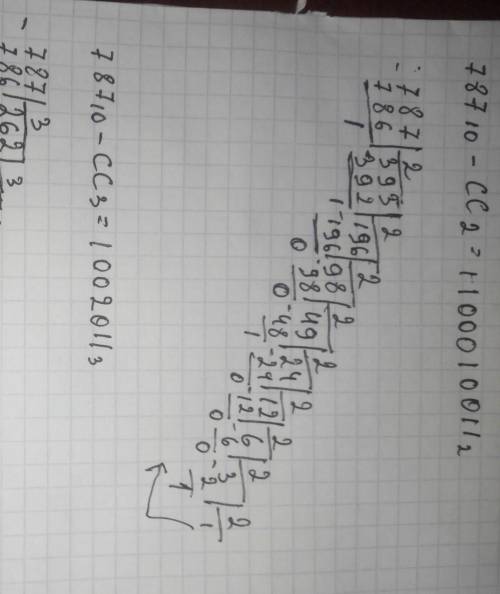 787₁₀ - CC₂ = 1100010011₂
- 787 | 2
786 | 393 | 2
1 392 | 196 | 2
1 - 196 | 98 | 2
0 - 98 | 49 | 2
0 - 48 | 24 | 2
1 - 24 | 12 | 2
0 - 12 | 6 | 2
0 - 6 | 3 | 2
0 - 2 | 1
1
787₁₀ - CC₃ = 1002011₃
- 787 | 3
786 | 262 | 3